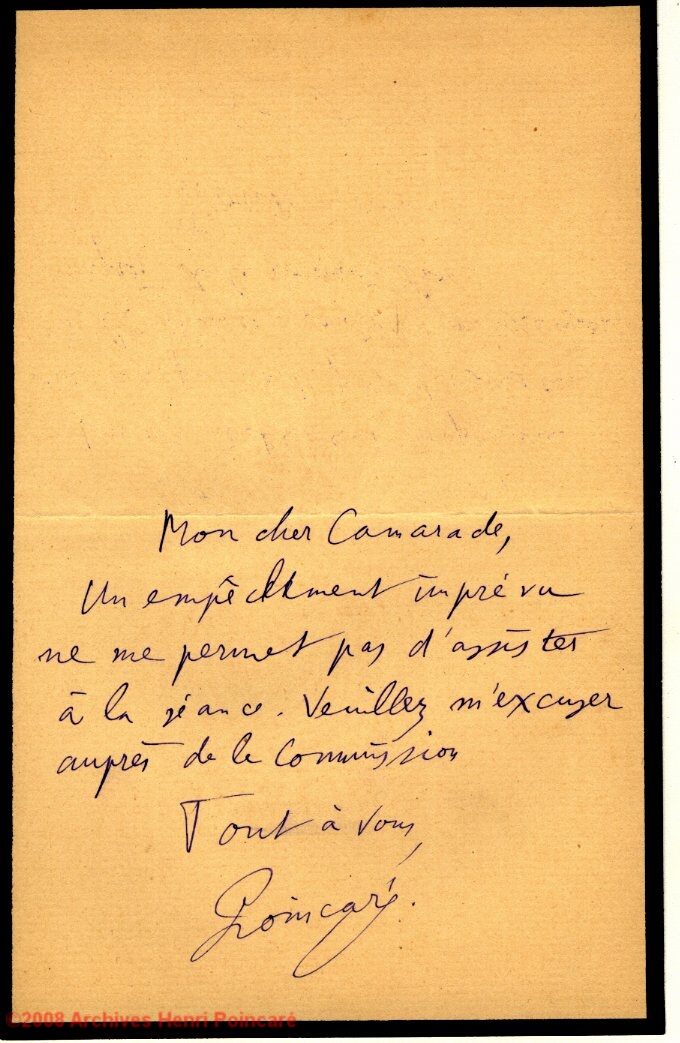 Mon cher Camarade,
Un empêchement imprévu
ne me permet pas d'assister
à la séance. Veuillez m'excuser
auprès de la Commission
Tout à vous,
Poincaré.
©2008 Archives Henri Poincaré